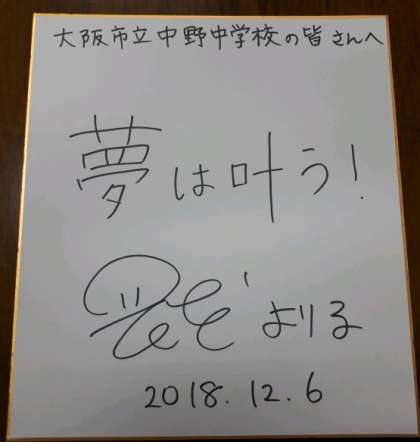 大阪市立中野中学校の皆さんへ
夢は叶う!
より子
2018.12.6